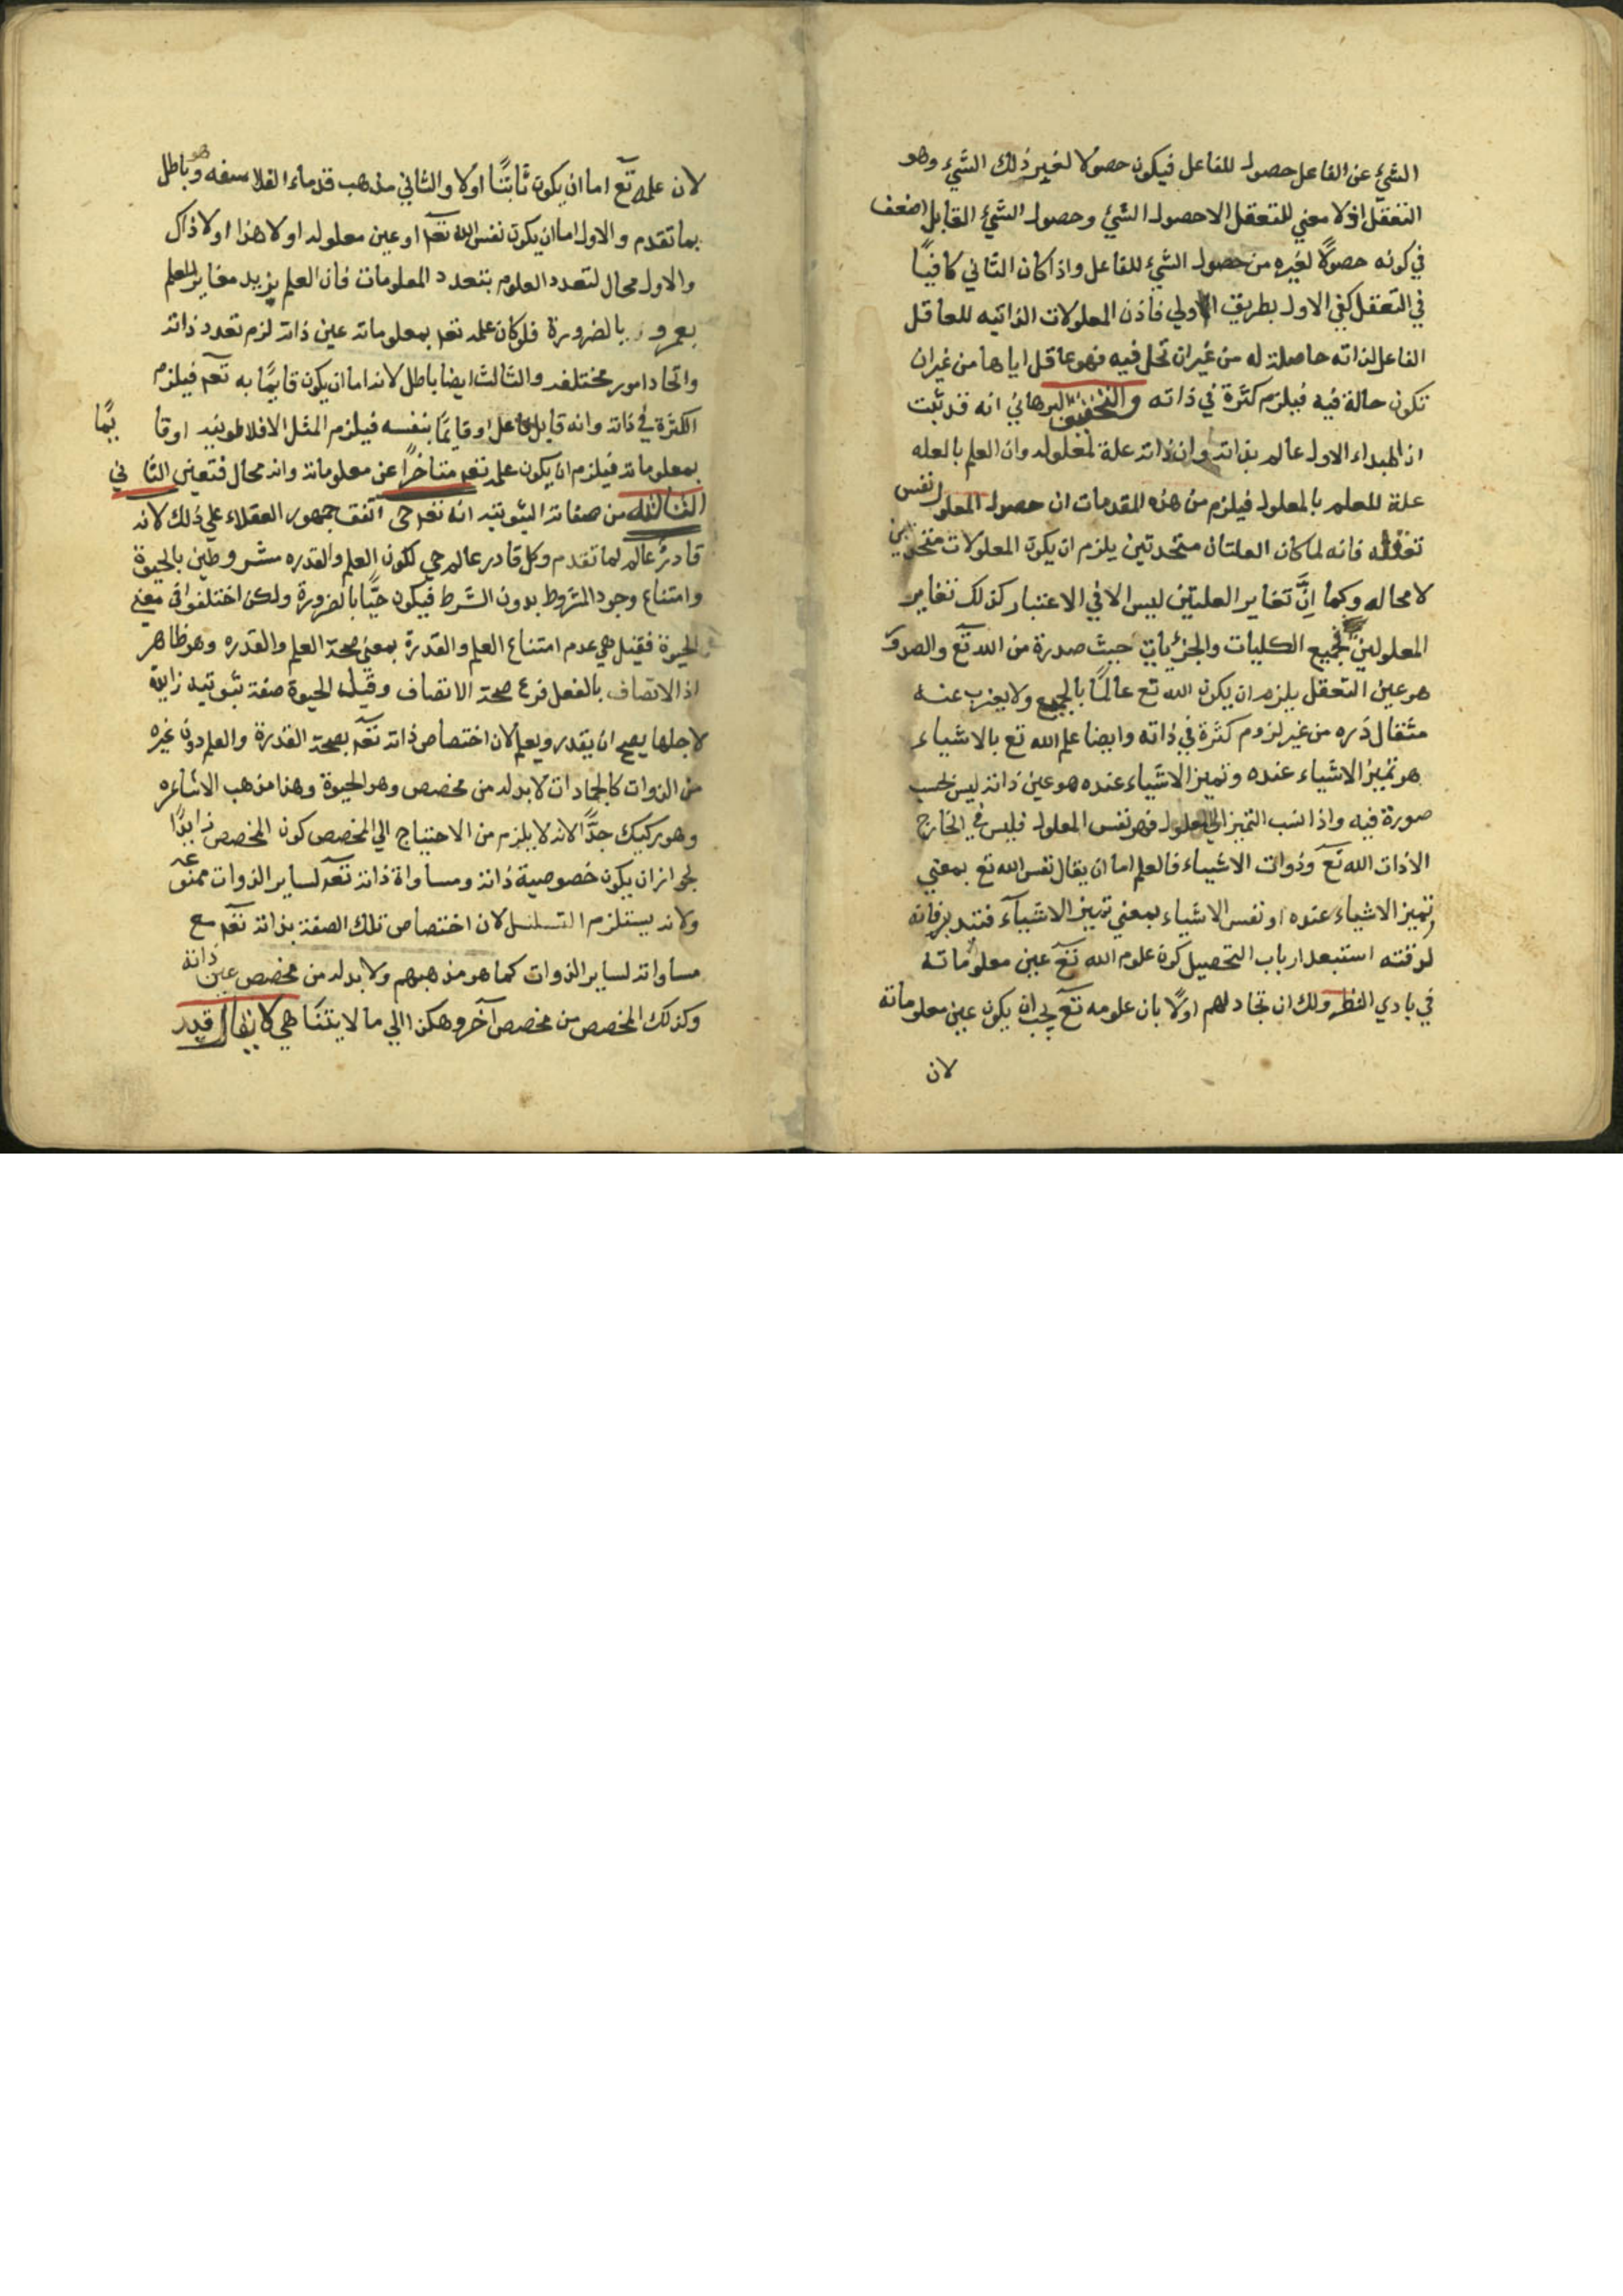 الشئ عن الفاعل حصول للفاعل فيكون حصولا لغير ذلك الشئ وهو
التعقل اذ لا معني للتعقل الا حصول الشئ وحصول الشئ القابل اضعف
في كونه حصولًا لغيره من حصول الشئ للفاعل واذا كان الثاني كافيًا
في التعقل كفي الاول بطريق الاولي فاذن المعلولات الذاتيه للعاقل
الفاعل لذاته حاصلة له من غير ان تحل فيه فهو عاقل اياها من غير ان
تكون حالة فيه فيلزم كثرة في ذاته والتحقيق البرهاني انه قد ثبت
ان المبداء الاول عالم بذاته وان ذاته علة لمعلوله وان العلم بالعله
علة للعلم بالمعلول فيلزم من هذه المقدمات ان حصول المعلول نفس
تعقله فانه لما كان العلتان متحدتين يلزم ان يكون المعلولات متحدين
لا محاله وكما انَّ تغاير العلتين ليس الا في الاعتبار كذلك تغاير
المعلولين فجميع الكليات والجزئيات حيث صدرة من الله تع والصدور
هو عين التعقل يلزم ان يكون الله تع عالمًا بالجميع ولا يعزب عنه
مثقال ذره من غير لزوم كثرة في ذاته وايضا علم الله تع بالاشياء
هو تميز الاشياء عنده وتميز الاشياء عنده هو عين ذاته ليس بحسب
صورة فيه واذا نسب التميز الي المعلول فهو نفس المعلول فليس في الخارج
الا ذات الله تع وذوات الاشياء فالعلم اما ان يقال نفس الله تع بمعني
تميز الاشياء عنده او نفس الاشياء بمعني تميز الاشياء فتدبر فانه
لدقته استبعد ارباب التحصيل كون علوم الله تع عين معلوماته
في بادي النظر ولك ان تجادلهم اولًا بان علومه تع يجب ان يكون عين معلوماته
لان
لان علمه تع اما ان يكون ثابتًا اولا والثاني مذهب قدماء الفلاسفه وهو باطل
بما تقدم والاول اما ان يكون نفس الله تع او عين معلوله او لا هذا او لا ذاك
والاول محال لتعدد العلوم بتعدد المعلومات فان العلم بزيد مغاير للعلم
بعمرو بالضرورة فلو كان علمه تع بمعلوماته عين ذاته لزم تعدد ذاته
واتحاد امور مختلفه والثالث ايضا باطل لانه اما ان يكون قايمًا به تع فيلزم
الكثرة في ذاته وانه قابل فاعل او قايمًا بنفسه فيلزم المثل الافلاطونيه او قايمًا
بمعلوماته فيلزم ان يكون علمه تع متاخرًا عن معلوماته وانه محال فتعين الثاني
الثالثه من صفاته الثبوتيه انه تع حي اتفق جمهور العقلاء علي ذلك لانه
قادر عالم لما تقدم وكل قادر عالم حي لكون العلم والقدره مشروطين بالحيوة
وامتناع وجود المشروط بدون الشرط فيكون حيًّا بالضرورة ولكن اختلفوا في معني
الحيوة فقيل هي عدم امتناع العلم والقدرة بمعني صحة العلم والقدره وهو ظاهر
اذ الاتصاف بالفعل فرع صحة الاتصاف وقيل الحيوة صفة ثبوتيه زايدة
لاجلها يصح ان يقدر ويعلم لان اختصاص ذاته تع بصحة القدرة والعلم دون غيره
من الذوات كالجمادات لا بد له من مخصص وهو الحيوة وهذا مذهب الاشاعره
وهو ركيك جدًّا لانه لا يلزم من الاحتياج الي المخصص كون المخصص زايدًا
لجواز ان يكون خصوصية ذاته ومساواة ذاته تع لساير الذوات ممنوعه
ولانه يستلزم التسلسل لان اختصاص تلك الصفة بذاته تع مع
مساواته لساير الذوات كما هو مذهبهم ولا بد له من مخصص عين ذاته
وكذلك المخصص من مخصص آخر وهكذا الي ما لا يتناهي لا يقال قيد